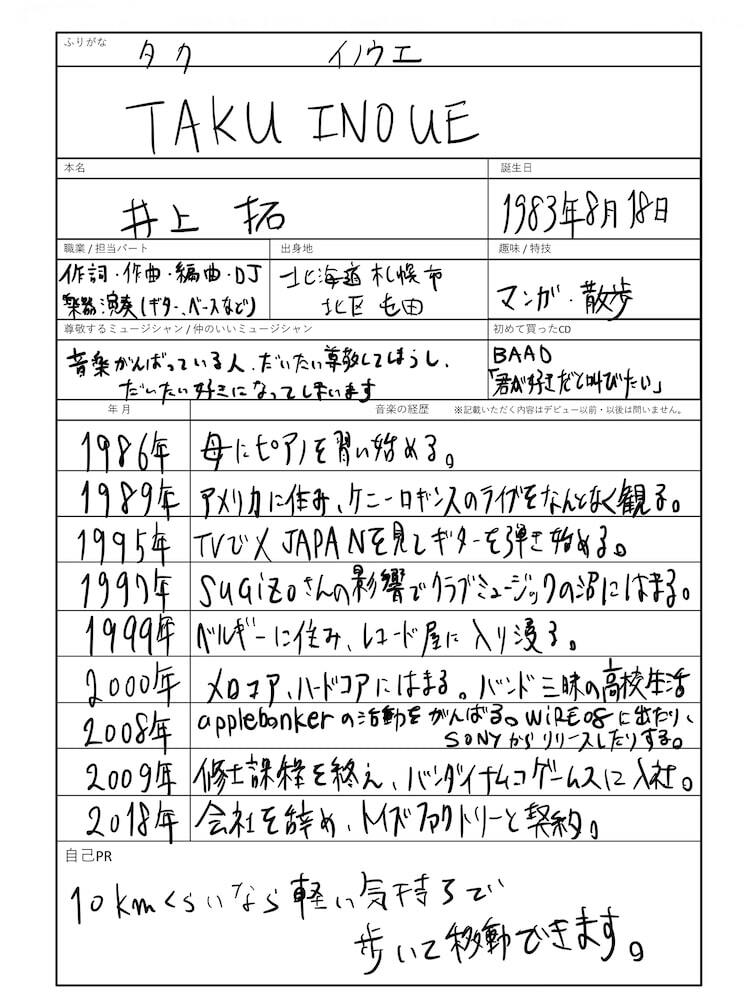 ふりがな
タク イノウエ
TAKU INOUE
本名
誕生日
井上 拓
1983年8月18日
職業 / 担当パート
出身地
趣味 / 特技
作詞・作曲・編曲・DJ
楽器演奏(ギター、ベースなど)
北海道札幌市
北区屯田
マンガ・散歩
尊敬するミュージシャン / 仲のいいミュージシャン
初めて買ったCD
音楽がんばっている人、だいたい尊敬してしまうし、
だいたい好きになってしまいます
BAAD
「君が好きだと叫びたい」
年 月
音楽の経歴 ※記載いただく内容はデビュー以前・以後は問いません。
1986年 母にピアノを習い始める。
1989年 アメリカに住み、ケニーロギンスのライブをなんとなく観る。
1995年 TVでX JAPANを見てギターを弾き始める。
1997年 SUGIZOさんの影響でクラブミュージックの沼にはまる。
1999年 ベルギーに住み、レコード屋に入り浸る。
2000年 メロコア、ハードコアにはまる。バンド三昧の高校生活
2008年 applebonkerの活動をがんばる。WIRE08に出たり、
SONYからリリースしたりする。
2009年 修士課程を終え、バンダイナムコゲームスに入社。
2018年 会社を辞め、トイズファクトリーと契約。
自己PR
10kmくらいなら軽い気持ちで
歩いて移動できます。